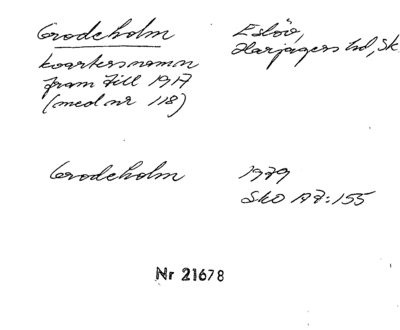 Grodeholm Eslöv,
Harjagers hd, Sk
kvartersnamn
fram till 1917
(med nr 118)
Grodeholm 1979
SkO A7:155
Nr 21678